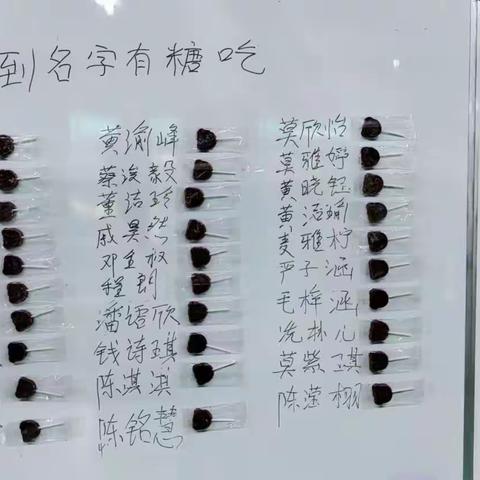 到名字有糖吃
黄渝峰
蔡浚毅
董洁珍
戚昊然
邓圭权
程玥
潘镡欣
钱诗琪
陈淇淇
陈铭慧
莫欣怡
莫雅婷
黄晓钰
黄洁瑜
麦雅柠
严子涵
毛梓涵
冼林儿
莫紫琪
陈滢栩